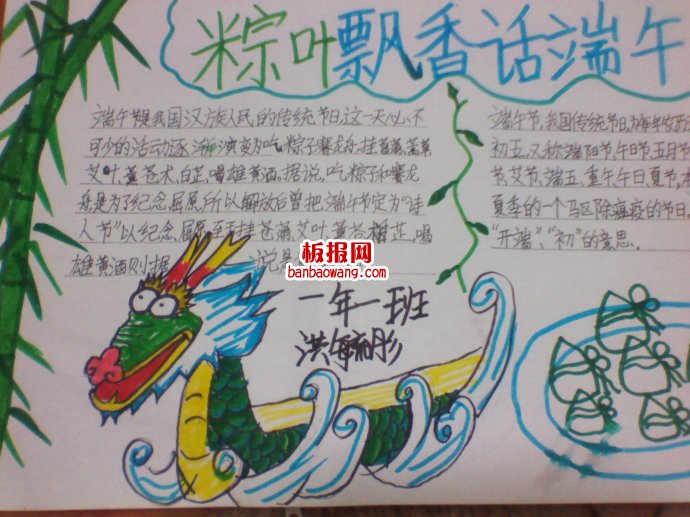 粽叶飘香话端午
端午节是我国汉族人民的传统节日这一天必不
可少的活动逐渐演变为吃粽子赛龙舟,挂菖蒲、蒿草
艾叶,薰苍术、白芷,喝雄黄酒。据说,吃粽子和赛龙
舟,是为了纪念屈原,所以解放后曾把端午节定为“诗
人节”以纪念屈原。至于挂菖蒲、艾叶,薰苍术、白芷,喝
雄黄酒则据说是
端午节,我国传统节日,为每年农历五
初五,又称端阳节、午日节、五月节
节、艾节、端五、重午、午日、夏节,本
夏季的一个驱除瘟疫的节日,
“开端”、“初”的意思。
板报网
banbaowang.com
一年一班
洪